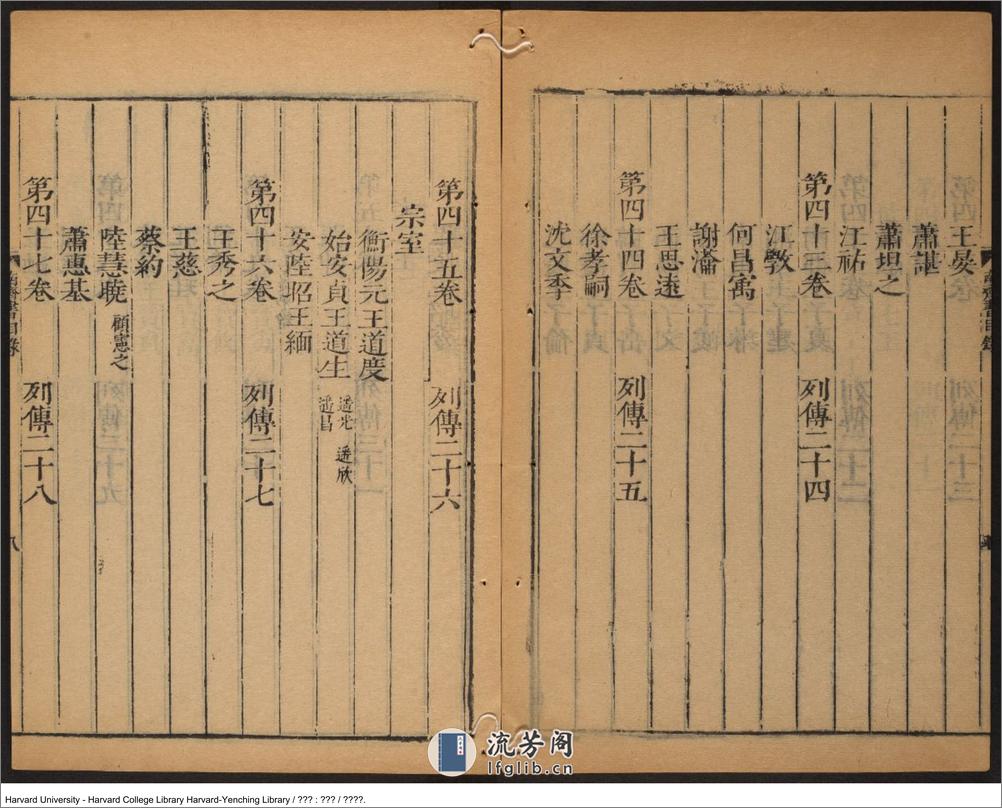 王晏
蕭諶
蕭坦之
江祏
第四十三卷 列傳二十四
江斆
何昌㝢
謝瀹
王思遠
第四十四卷 列傳二十五
徐孝嗣
沈文季
第四十五卷 列傳二十六
宗室
衡陽元王道度
始安貞王道生 遥光 遥欣 遥昌
安陸昭王緬
第四十六卷 列傳二十七
王秀之
王慈
蔡約
陸慧曉 顧憲之
蕭惠基
第四十七卷 列傳二十八
八
流芳阁
lfglib.cn
Harvard University - Harvard College Library Harvard-Yenching Library / ??? : ??? / ????.